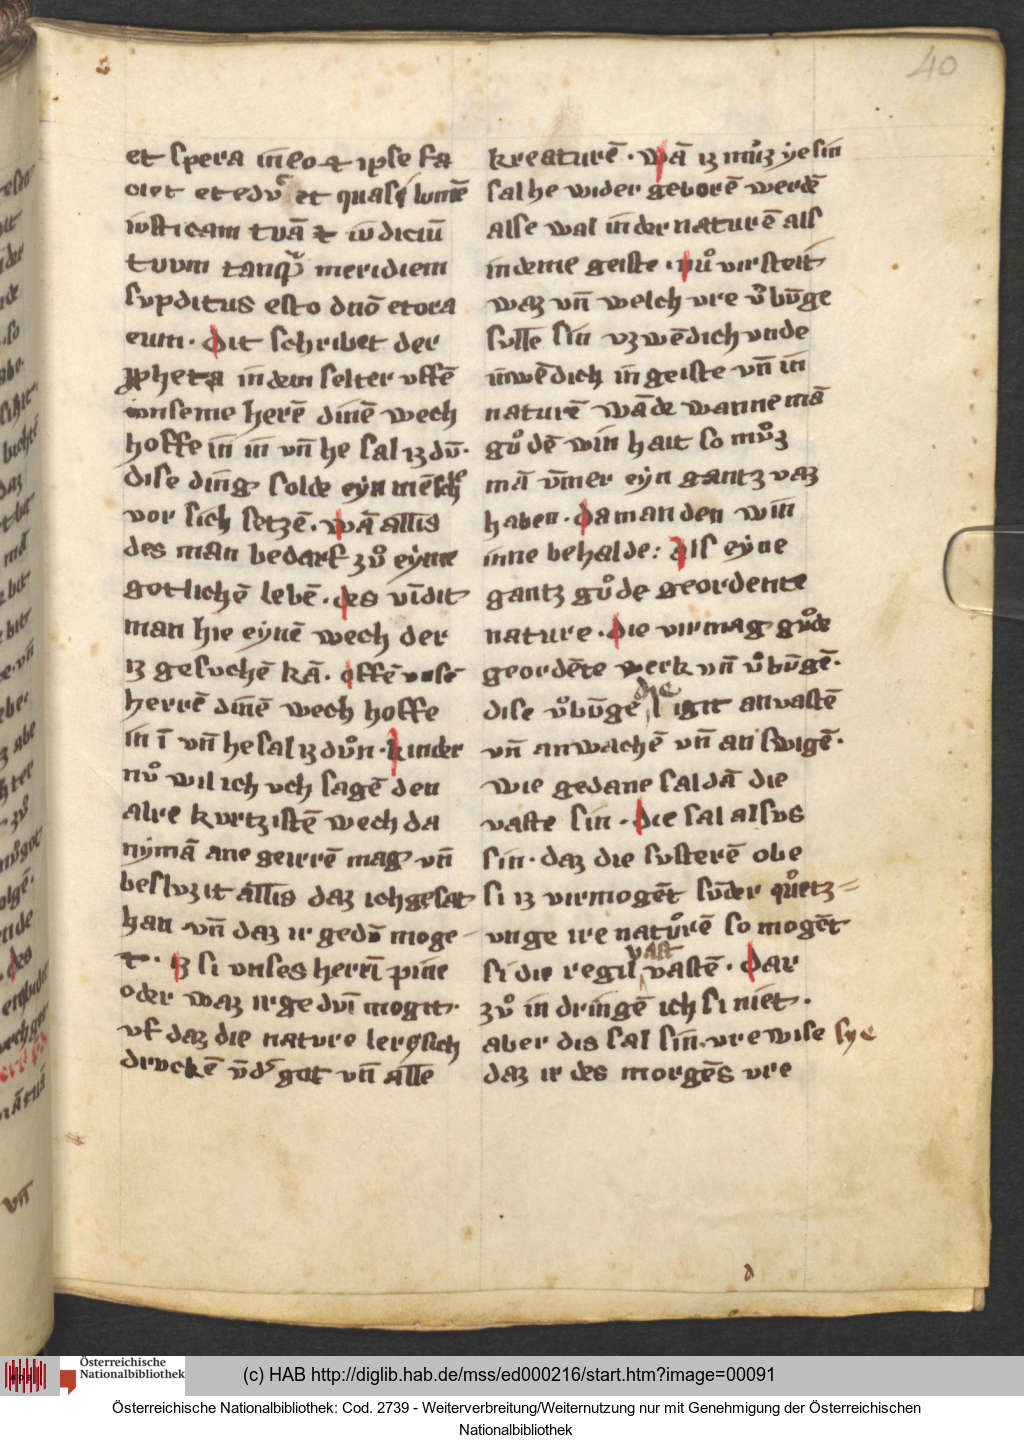 40
et spera in eo ⁊ ip̄se fa
ciet et edu͛ et quasi lumē
iusticam tuā ⁊ iudiciū
tuum tanq̄ meridiem
subditus esto dn̄o et ora
eum · Dit schribet der
ꝓpheta in dem selter uffē
vnseme herē dinē wech
hoffe in in vn̄ he sal iz dv̄ ·
dise ding solde eyn mēsche
vor sich setzē · wā allis
des man bedarf zvͦ eyme
gotlichē lebē · des vīdit
man hie eynē wech der
iz gesuchē kā · offē vnsē
herrē dinē wech hoffe
in ī vn̄ he sal iz dvͦn · kinder
nvͦ wil ich vch sagē den
alre kurtzistē wech da
nymā ane gerrē mag vn̄
besluzit allis daz ich gesat
han vn̄ daz ir gedvͦ moge-
t · iz si vnses herrī pine
oder waz ir gedvī mogit ·
vf daz die nature ler sich
druckē vn̄d͛ got vn̄ alle
kreaturē · wā iz mvͦz ye sin
sal he wider geborē werdē
alse wal in der naturē als
in deme geiste · nvͦ virsteit
waz vn̄ welch vre vͦbv̄ge
sulle sin vzwēdich vnde
inwēdich in geiste vn̄ in
naturē wāde wanne mā
gvͦdē win hait so mvͦz
mā v̄mer eyn gantz vaz
haben · da man den win
inne behalde : als eyne
gantz gvͦde geordente
nature · die virmag gvͦde
geordēte werk vn̄ vͦbv̄gē ·
die
dise vͦbv̄ge ligit an vastē
vn̄ an wachē vn̄ an swigē ·
wie gedane sal dā die
vaste sin · die sal alsus
sin · daz die susterē obe
si iz virmogēt sv̄der qvͦetz=
vnge ire natvͦrē so mogēt
vast
si die regil vastē · dar
zvͦ in dringē ich si niet ·
aber dis sal sin vre wise sye
daz ir des morgēs vre
(c) HAB http://diglib.hab.de/mss/ed000216/start.htm?image=00091
Österreichische Nationalbibliothek
Österreichische Nationalbibliothek: Cod. 2739 - Weiterverbreitung/Weiternutzung nur mit Genehmigung der Österreichischen
Nationalbibliothek